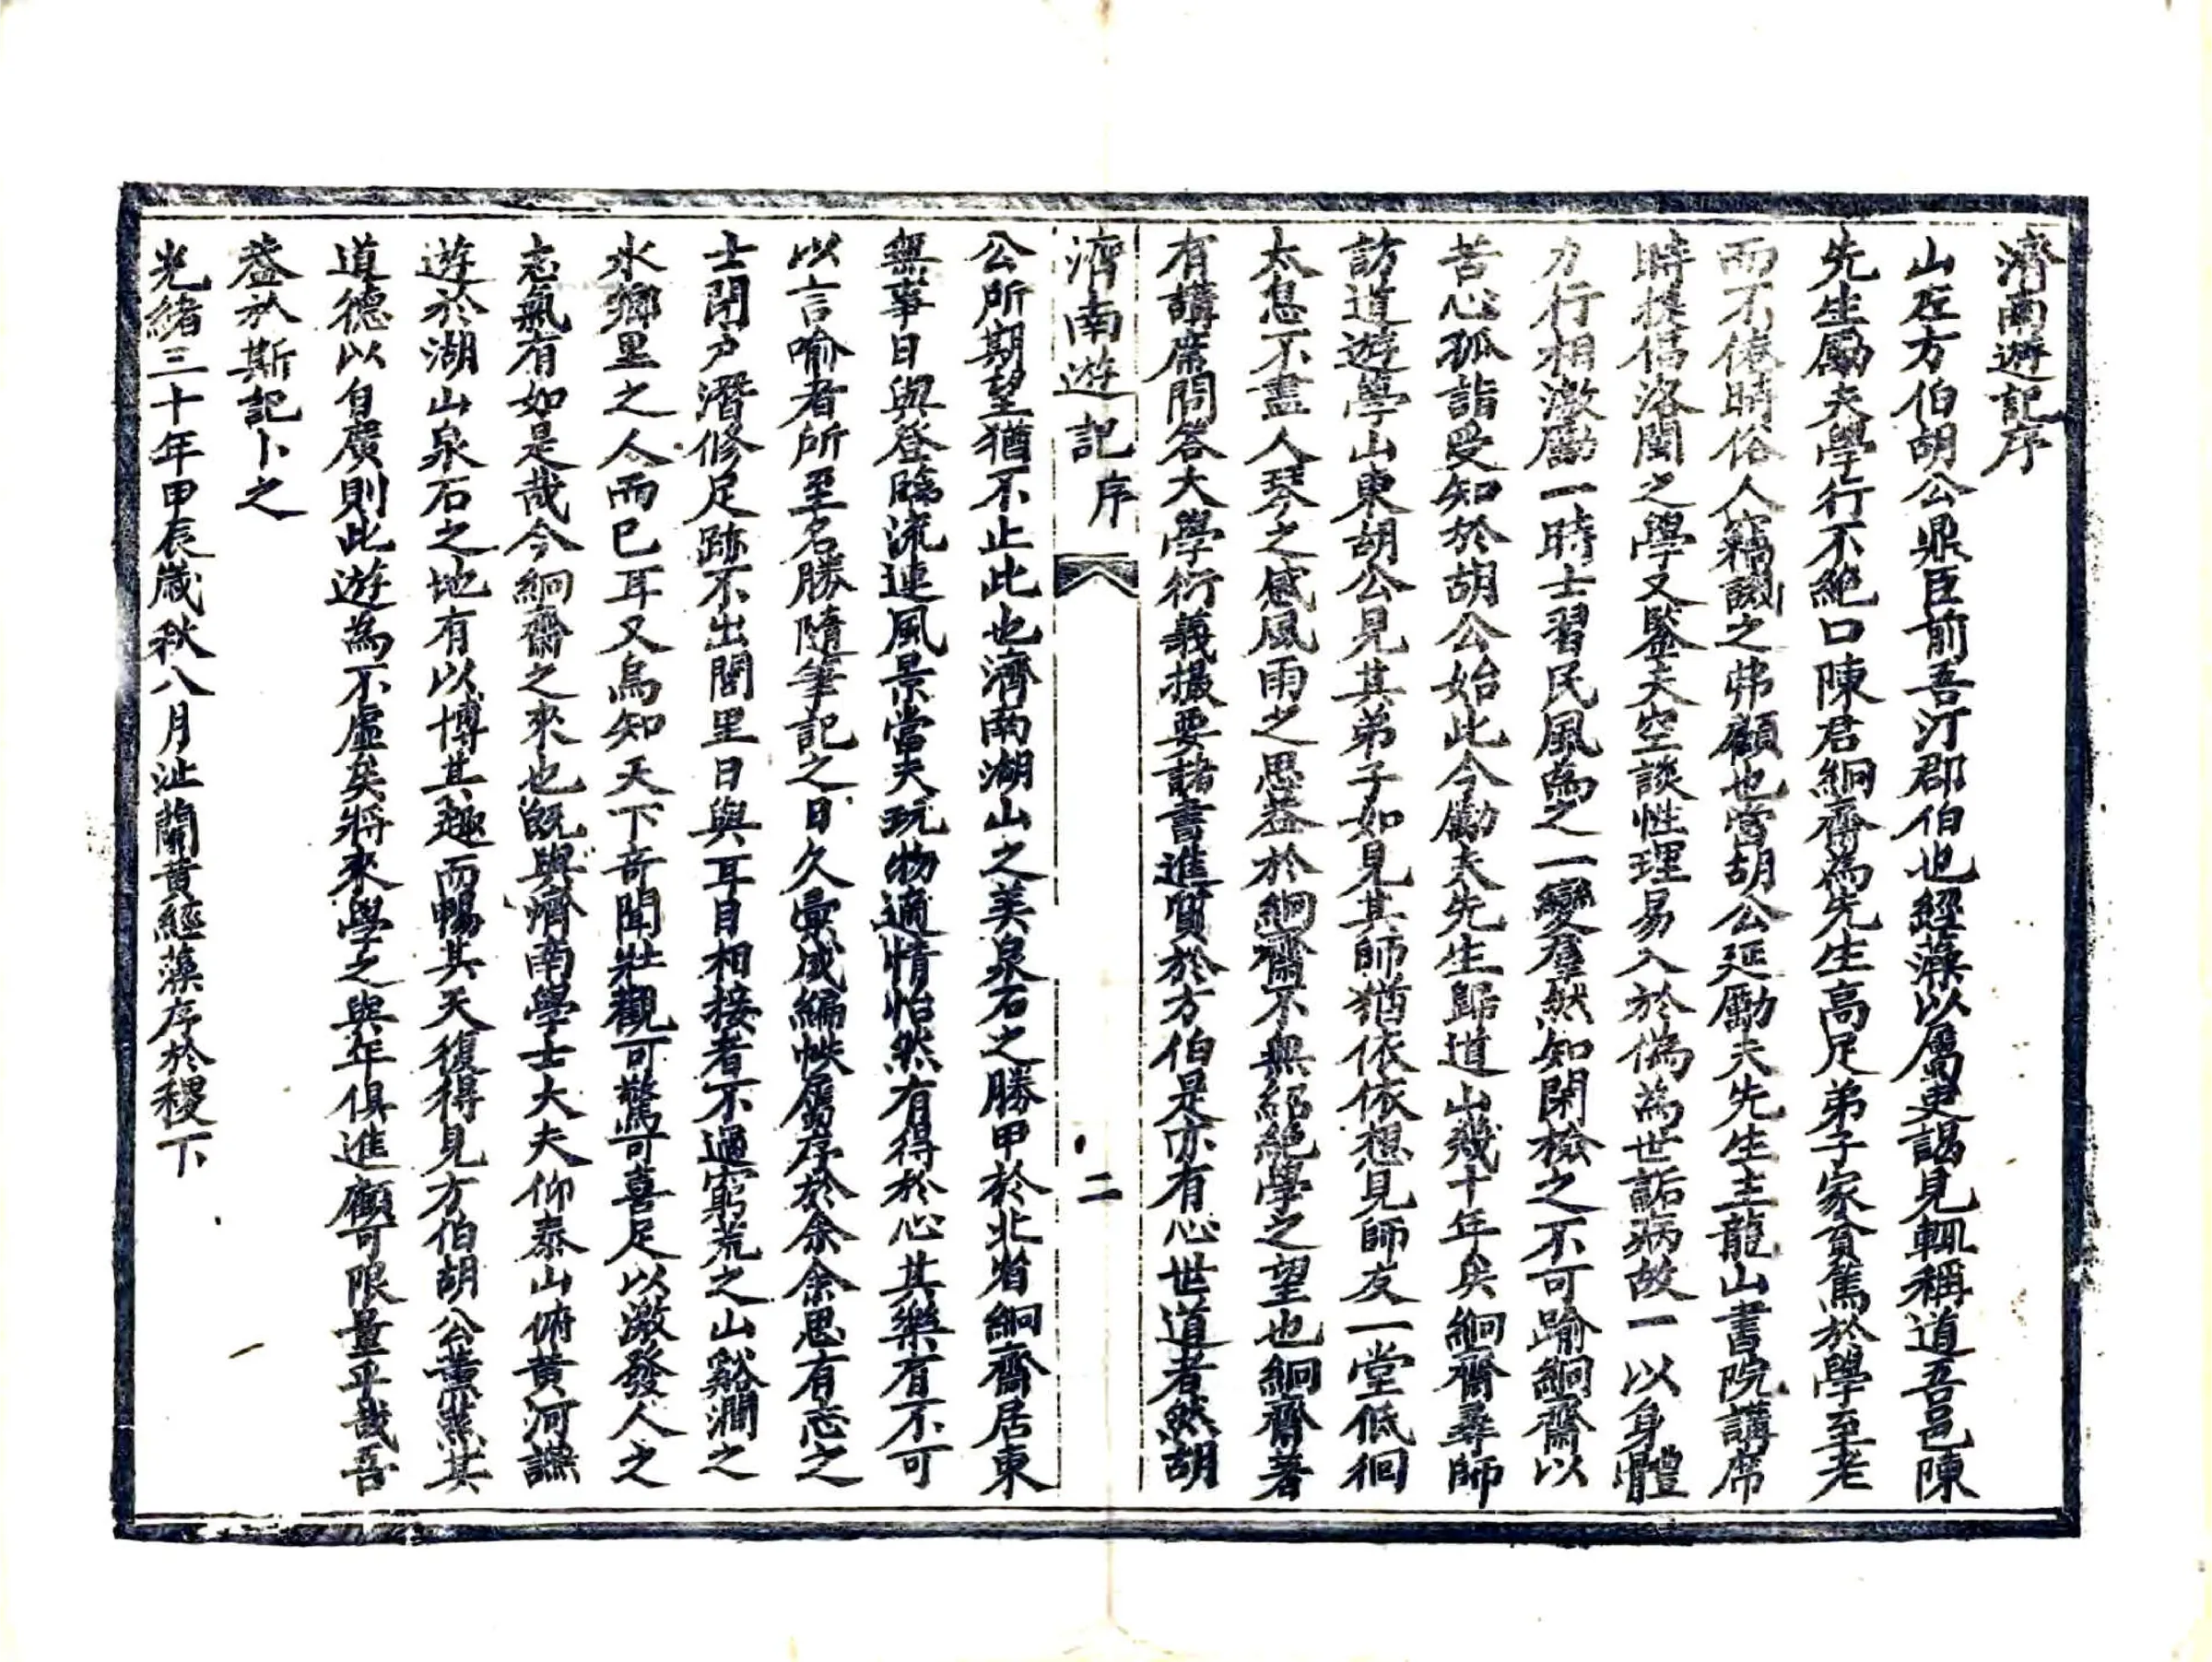 濟南遊記序
山左方伯胡公鼎臣前吾汀郡伯也經藻以屬吏謁見輒稱道吾邑陳
先生勵夫學行不絕口陳君絅齋為先生高足弟子家貧篤於學至老
而不倦時俗人竊譏之弗顧也當胡公延勵夫先生主龍山書院講席
時提倡洛閩之學又鑒夫空談性理易入於偽為世詬病故一以身體
力行相激勵一時士習民風為之一變羣然知閑檢之不可踰絅齋以
苦心孤詣受知於胡公始此今勵夫先生歸道山幾十年矣絅齋尋師
訪道遊學山東胡公見其弟子如見其師猶依依想見師友一堂低徊
太息不盡人琴之感風雨之思益於絅齋不無紹絕學之望也絅齋著
有講席問答大學衍義撮要諸書進質於方伯是亦有心世道者然胡
濟南遊記 序
二
公所期望猶不止此也濟南湖山之美泉石之勝甲於北省絅齋居東
無事日與登臨流連風景當夫玩物適情怡然有得於心其樂有不可
以言喻者所至名勝隨筆記之日久彙成編帙屬序於余余思有志之
士閉戶潛修足跡不出閭里日與耳目相接者不過窮荒之山谿澗之
水鄉里之人而已耳又烏知天下奇聞壯觀可驚可喜足以激發人之
志氣有如是哉今絅齋之來也既與濟南學士大夫仰泰山俯黃河讌
遊於湖山泉石之地有以博其趣而暢其天復得見方伯胡公薰蒸其
道德以自廣則此遊為不虛矣將來學之與年俱進顧可限量乎哉吾
蓋於斯記卜之
光緒三十年甲辰歲秋八月沚蘭黃經藻序於稷下